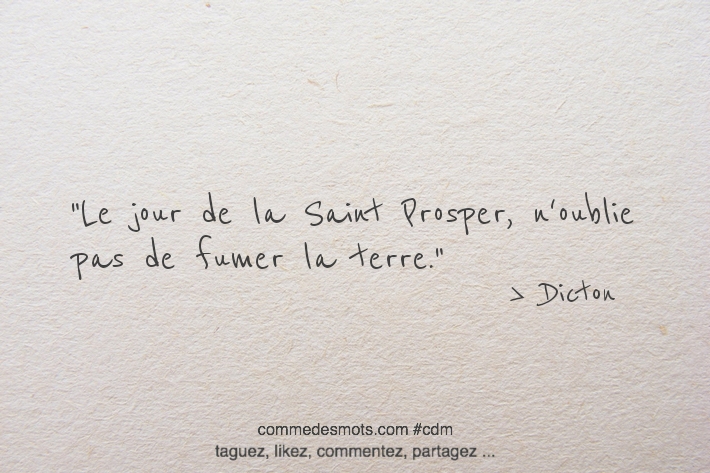 "Le jour de la Saint Prosper, n'oublie
pas de fumer la terre."
> Dicton
commedesmots.com #cdm
taguez, likez, commentez, partagez ...